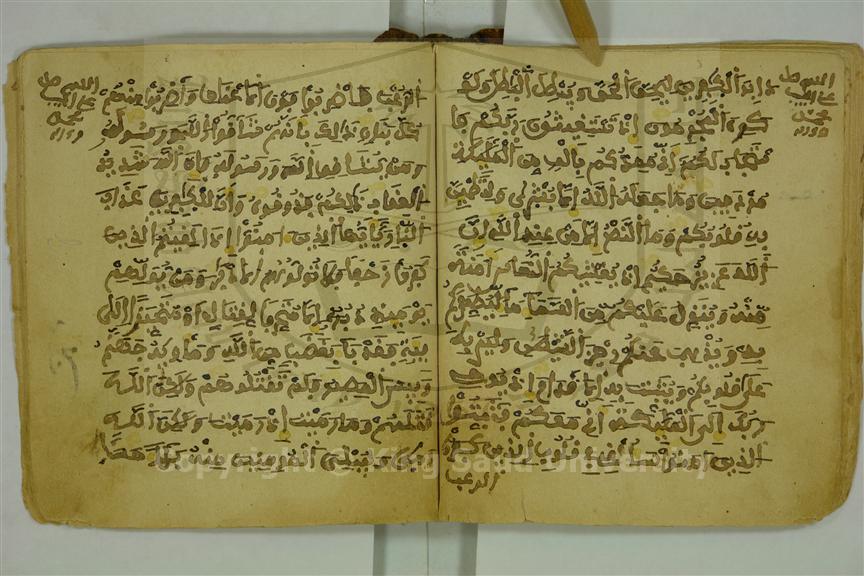 اللهم صل
على النبي
محمد
دابر الكفرين ليحق الحق ويبطل البطل ولو
كره المجرمون إذ تستغيثون ربكم فا
ستجاب لكم أني ممدكم بالف من المليكة
مردفين وما جعله الله إلا بشرى ولتطمين
به قلوبكم وما النصر إلا من عند الله إن
الله عزيز حكيم إذ يغشيكم النعاس امنة
منه وينزل عليكم من السماء ماء ليطهركم
به ويذهب عنكم رجز الشيطن وليربط
على قلوبكم ويثبت به الاقدام إذ يوحي
ربك إلى المليكة أني معكم فثبتوا
الذين امنوا سألقي في قلوب الذين كفروا
الرعب
اللهم صل
على النبي
محمد
الرعب فاضربوا فوق الاعناق واضربوا منهم
كل بنان ذلك بانهم شاقوا الله ورسوله
ومن يشاقق الله ورسوله فان الله شديد
العقاب ذلكم فذوقوه وان للكفرين عذاب
النار يايها الذين امنوا إذا لقيتم الذين
كفروا زحفا فلا تولوهم الادبار ومن يولهم
يومئذ دبره إلا متحرفا لقتال او متحيزا إلى
فئة فقد باء بغضب من الله وماويه جهنم
وبيس المصير فلم تقتلوهم ولكن الله
قتلهم وما رميت إذ رميت ولكن الله
رمى وليبلي المومنين منه بلاء حسنا
Copyright © King Saud University